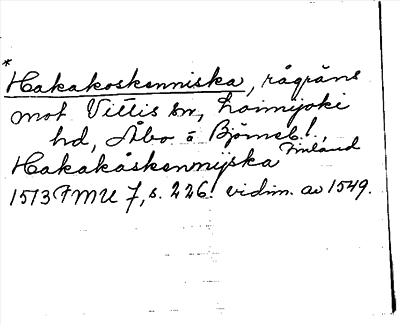 *
Hakakoskenniska, rågräns
mot Vittis sn, Loimijoki
hd, Åbo o Björneb. l.,
Finland
Hakakåskennijska
1513 FMU 7, s. 226. vidim. av 1549.